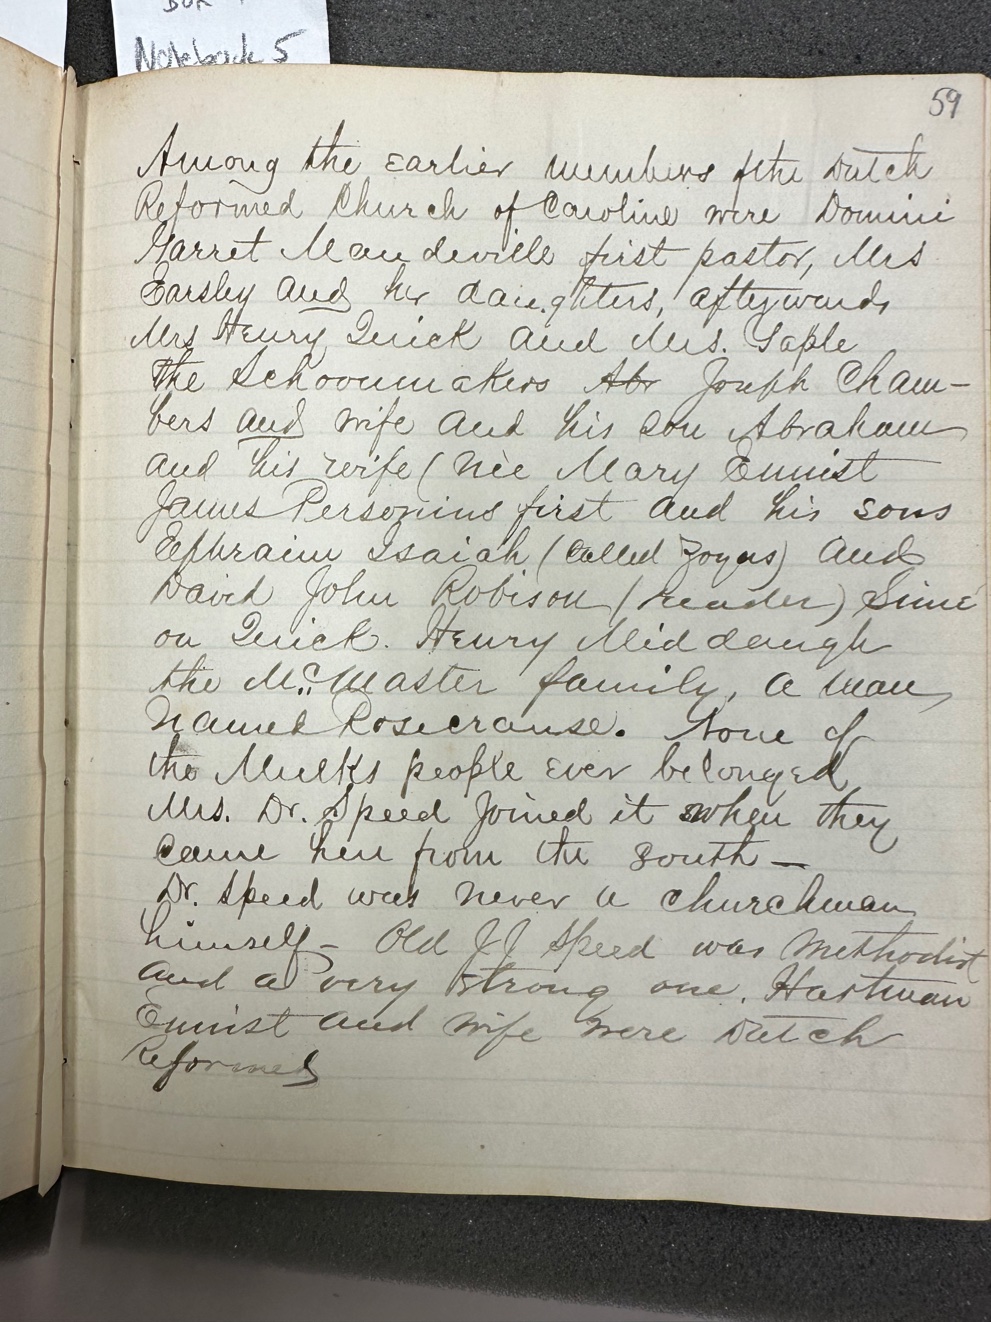 Notebook 5
59
Among the earlier members of the Dutch
Reformed Church of Caroline were Domini
Garret Mandeville first pastor, Mrs
Earsley and her daughters, afterwards
Mrs Henry Quick and Mrs. Taple
The Schoonmakers Abr Joseph Cham-
bers and wife and his son Abraham
and his wife (née Mary Ennist
James Personius first and his sons
Ephraim Isaiah (called ) and
David John Robison (reader) Sime
on Quick. Henry Middaugh
the McMaster family, a man
named Rosecranse. None of
the Mulks people ever belonged
Mrs. Dr. Speed joined it when they
came here from the south —
Dr. Speed was never a churchman
himself - Old JJ Speed was Methodist
and a very strong one. Hartman
Ennist and wife were Dutch
Reformed